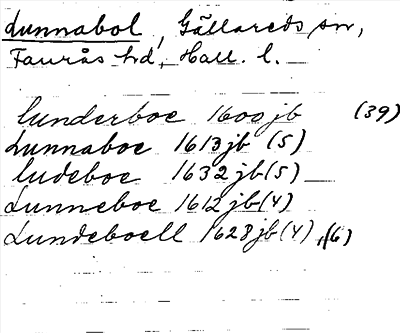 Lunnabol, Gällareds sn,
Faurås hd, Hall. l.
Lunderboe 1600 jb (39)
Lunnaboe 1613 jb (5)
Ludeboe 1632 jb (5)
Lunneboe 1612 jb (4)
Lundeboell 1628 jb (4), (6)